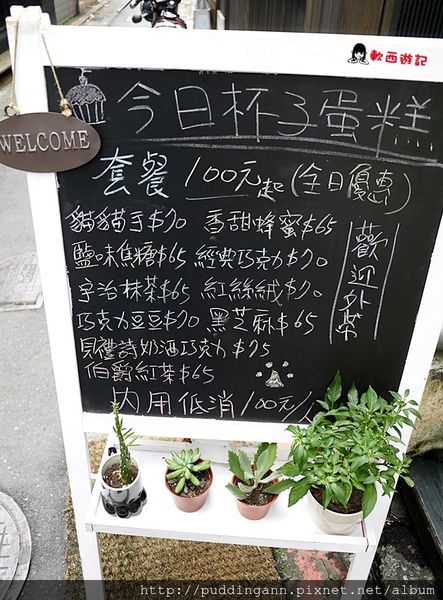 軟西遊記
WELCOME
今日杯子蛋糕
套餐 100元起(全日優惠)
貓貓手$70 香甜蜂蜜$65
鹽味焦糖$65 經典巧克力$70
宇治抹茶$65 紅絲絨$70
巧克力豆豆$70 黑芝麻$65
貝禮詩奶酒巧克力$75
伯爵紅茶$65
歡迎外帶
內用低消100元/人
http://puddingann.pixnet.net/album